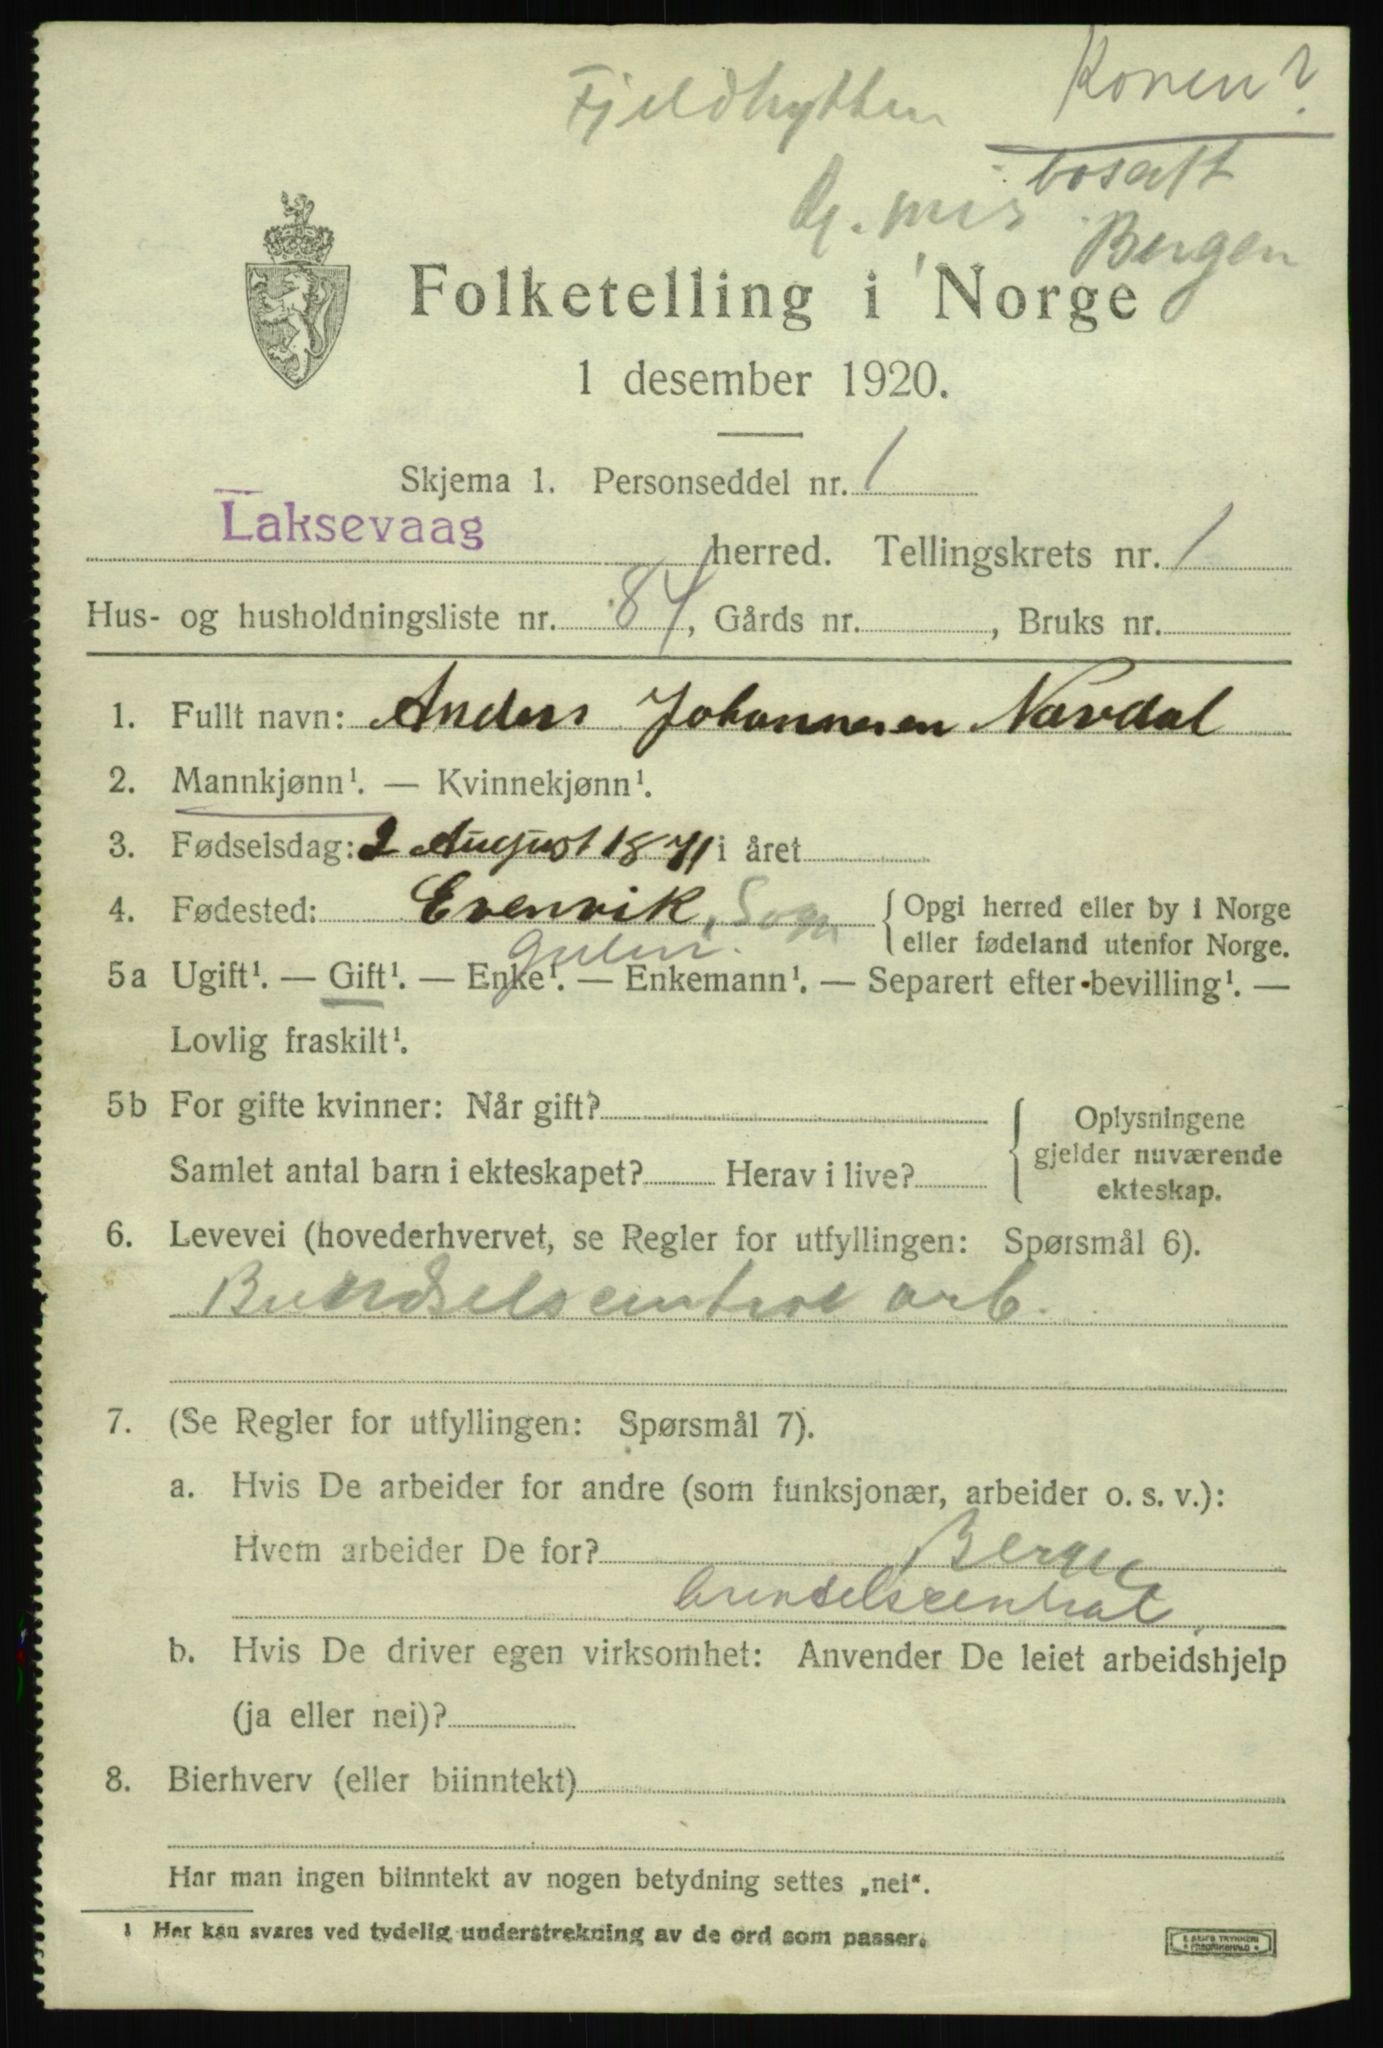 Fjeldhytten Konen?
bosatt
Bergen
Folketelling i Norge
1 desember 1920.
Skjema 1. Personseddel nr. 1
Laksevaag herred. Tellingskrets nr. 1
Hus- og husholdningsliste nr. 84, Gårds nr. , Bruks nr.
1. Fullt navn: Anders Johannesen Nordal
2. Mannkjønn¹. — Kvinnekjønn¹.
3. Fødselsdag: 2 August 1871 i året
4. Fødested: Evenvik, Sogn { Opgi herred eller by i Norge
eller fødeland utenfor Norge.
Gulen.
5a Ugift¹. — Gift¹. — Enke¹. — Enkemann¹. — Separert efter bevilling¹. —
Lovlig fraskilt¹.
5b For gifte kvinner: Når gift? { Oplysningene
gjelder nuværende
Samlet antal barn i ekteskapet? Herav i live?
ekteskap.
6. Levevei (hovederhvervet, se Regler for utfyllingen: Spørsmål 6).
Brændselscentral arb.
7. (Se Regler for utfyllingen: Spørsmål 7).
a. Hvis De arbeider for andre (som funksjonær, arbeider o. s. v.):
Hvem arbeider De for? Berg.
brendselscentral
b. Hvis De driver egen virksomhet: Anvender De leiet arbeidshjelp
(ja eller nei)?
8. Bierhverv (eller biinntekt)
Har man ingen biinntekt av nogen betydning settes „nei“.
¹ Her kan svares ved tydelig understrekning av de ord som passer.